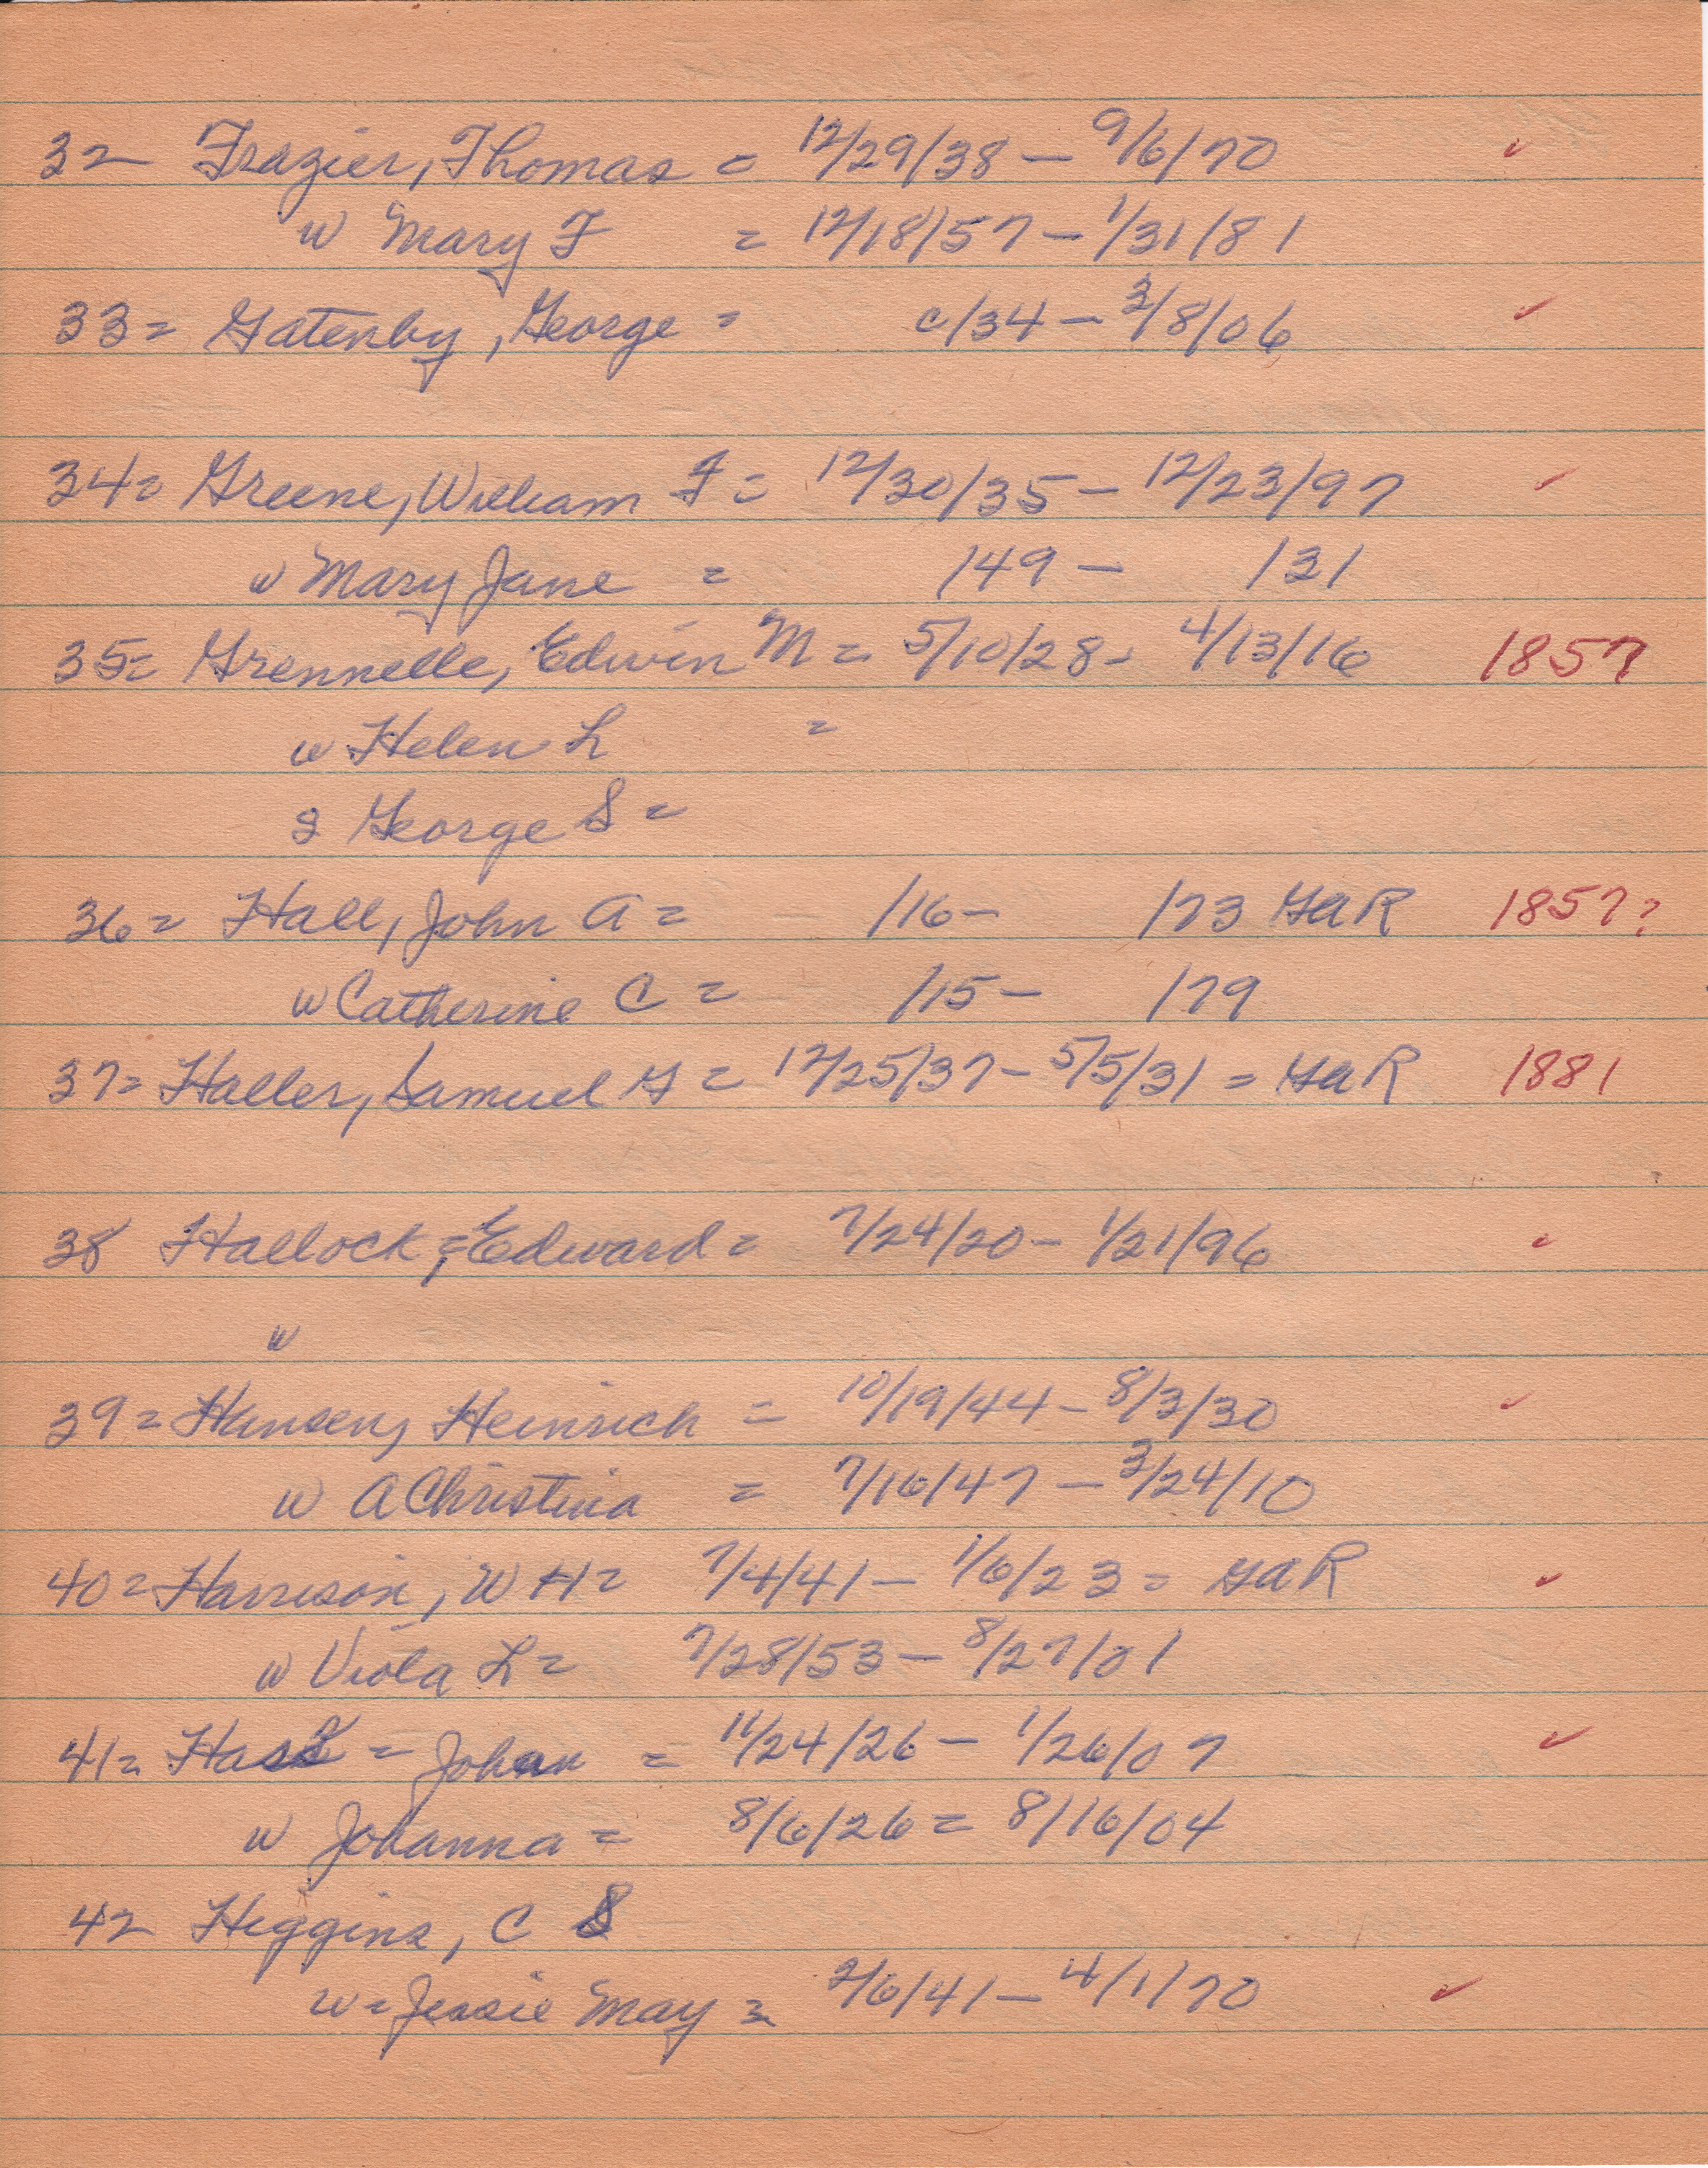 32 Frazier, Thomas = 12/29/38 — 9/6/70 ✓
w Mary F = 12/18/57 — 1/31/81
33 = Gatenby, George = c/34 — 3/8/06 ✓
34 = Greene, William F = 12/30/35 — 12/23/97 ✓
w Mary Jane = /49 — /31
35 = Grennelle, Edwin M = 5/10/28 - 4/13/16 1857
w Helen L =
s George S =
36 = Hall, John A = /16 — /73 GAR 1857?
w Catherine C = /15 — /79
37 = Haller, Samuel G = 12/25/37 — 5/5/31 = GAR 1881
38 Hallock, = Edward = 7/24/20 — 1/21/96 ✓
w
39 = Hansen, Heinrich = 10/19/44 — 8/3/30 ✓
w A Christina = 7/16/47 — 3/24/10
40 = Harrison, W H = 7/4/41 — 1/6/23 = GAR ✓
w Viola L = 7/28/53 — 8/27/01
41 = = Johan = 11/24/26 — 1/26/07 ✓
w Johanna = 8/6/26 = 8/16/04
42 Higgins, C S
w = Jessie May = 2/6/41 — 4/1/70 ✓